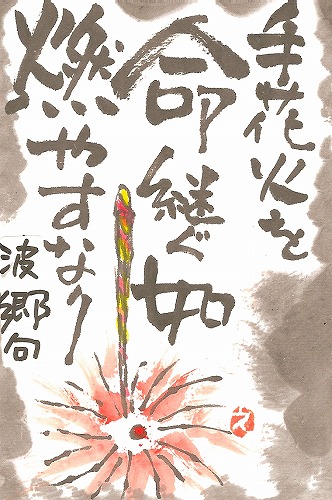 手花火を
命継ぐ如
燃やすなり
波郷句